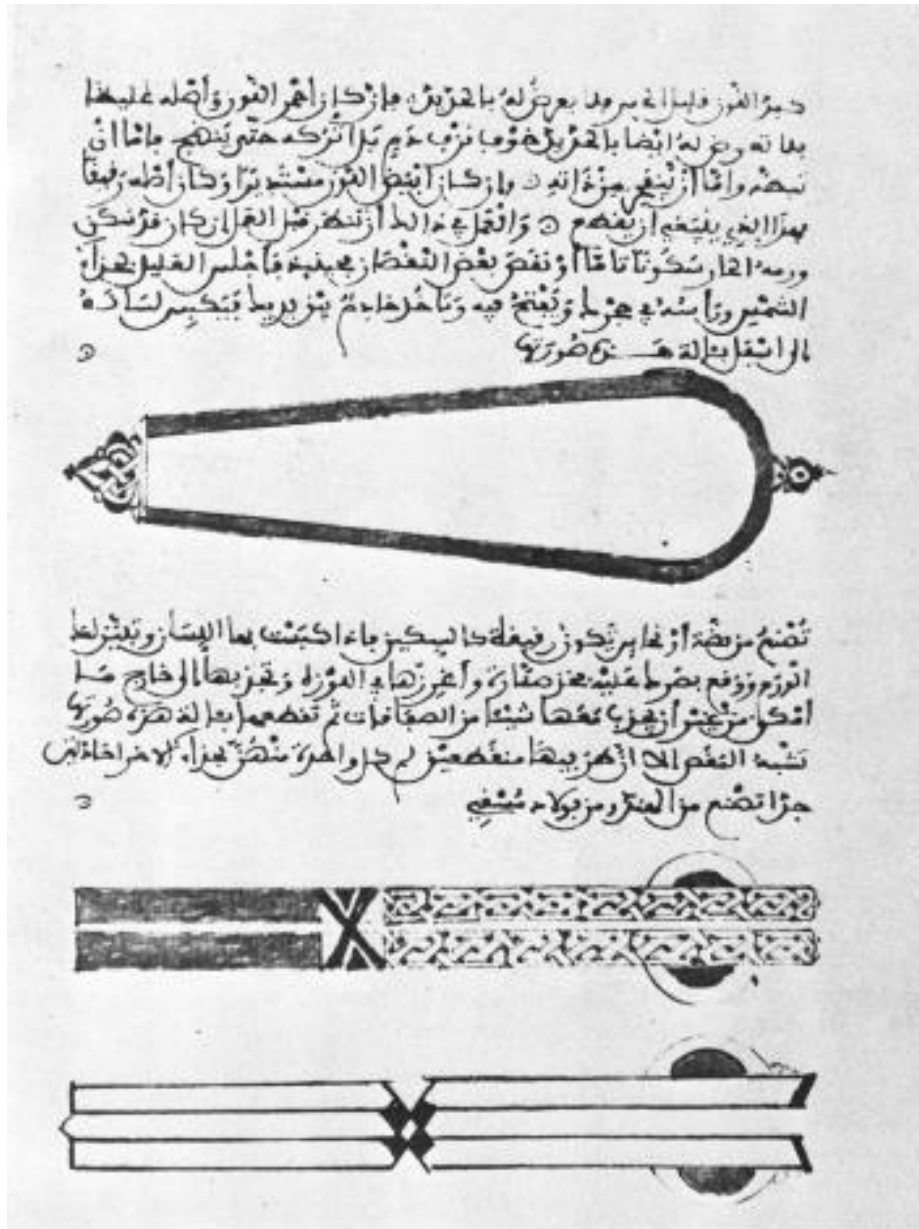 كمد اللون قليل الحس فلا تعرض له بالحديد، فإن كان أحمر اللون وأصله غليظا
فلا تعرض له أيضا بالحديد خوفا نزف دم بل اتركه حتى ينضج فإما أن
تبطه وإما أن ينفجر من ذاته وإن كان أبيض اللون مستديرا وكان أصله رقيقا
فهذا الذي ينبغي أن يقطع والعمل في ذلك أن تنظر قبل العمل إن كان قد سكن
ورمه الحار سكونا تاما أو نقص بعض النقصان فحينئذ فأجلس العليل بحذاء
الشمس ورأسه في حجرك وتفتح فيه وتأخذ خادم بين يديك فيكبس لسانه
إلى أسفل بآلة هذه صورتها
تصنع من فضة أو نحاس تكون رقيقة كالسكين فإذا اكبست بها اللسان وتبين لك
الورم ووقع بصرك عليه فخذ صنارة وأغرزها في اللوزة وتجذبها إلى خارج ما
أمكن من غير أن يجذب معها شيئا من الصفاقات ثم تقطعهما بآلة هذه صورتها
تشبه المقص إلا أن طرفيها منعطفين فم كل واحدة منهن بحذاء الأخرى
جدا تصنع من الهند أو من فولاذ مسقي